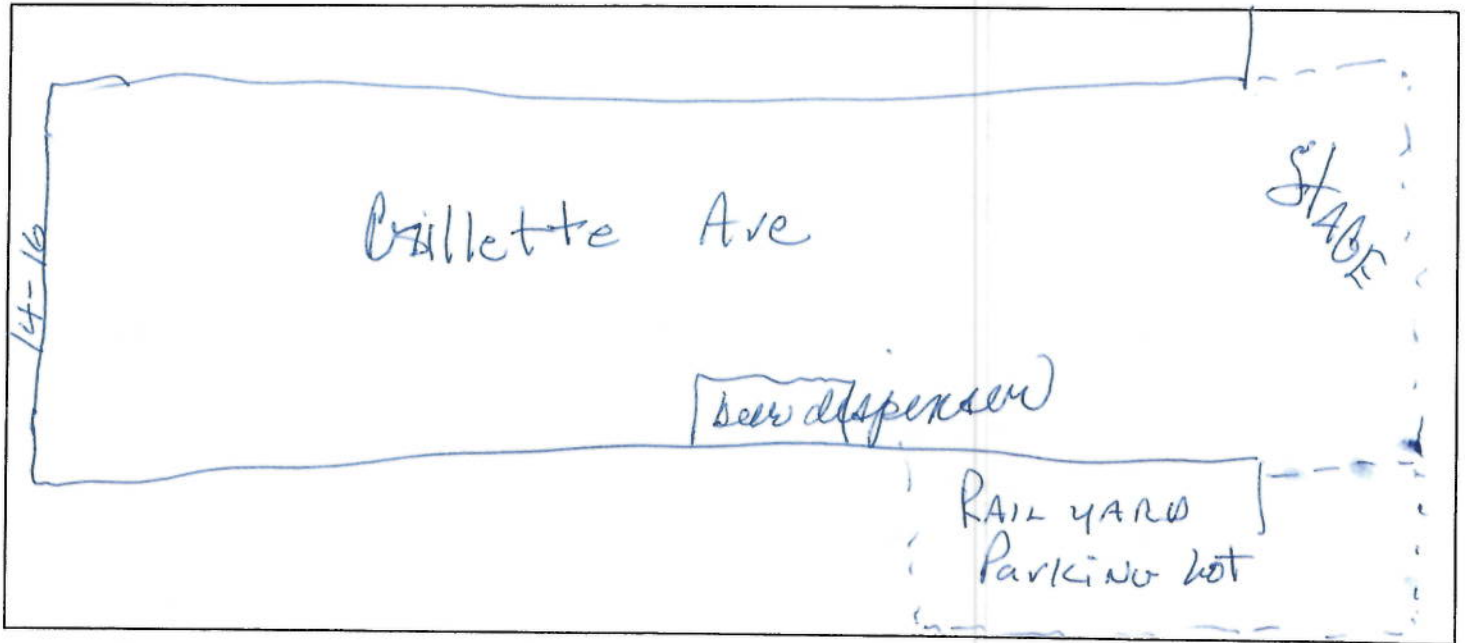 Gillette Ave
STAGE
14-16
beer dispenser
RAIL YARD
Parking Lot